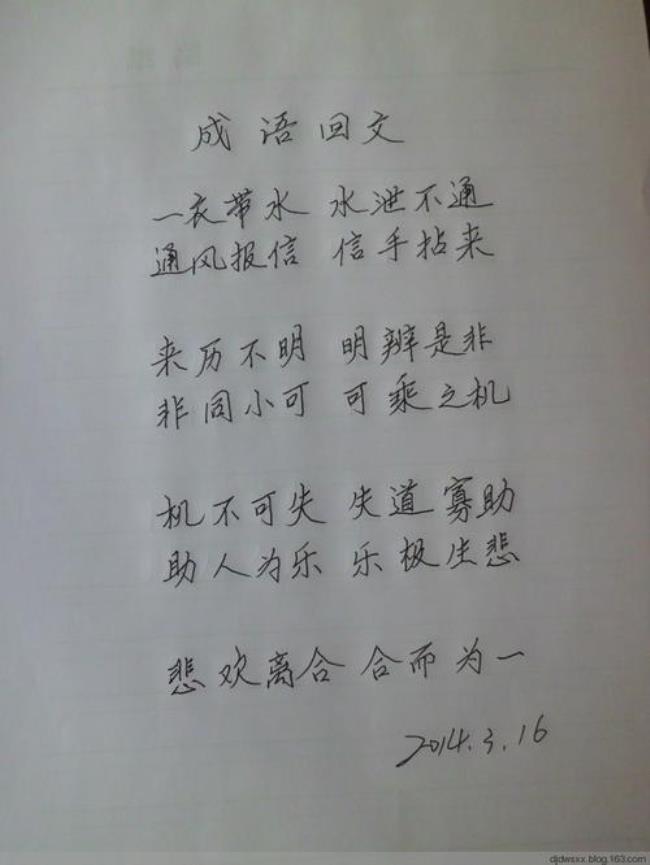 成语回文
一衣带水 水泄不通
通风报信 信手拈来
来历不明 明辨是非
非同小可 可乘之机
机不可失 失道寡助
助人为乐 乐极生悲
悲欢离合 合而为一
2014.3.16
djdwsxx.blog.163.com